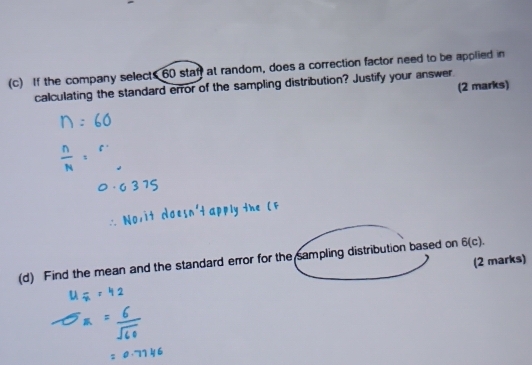 (c) If the company selects 60 staff at random, does a correction factor need to be applied in
calculating the standard error of the sampling distribution? Justify your answer.
(2 marks)
n = 60
n/N =
0.0375
∴ No, it doesn't apply the CF
(d) Find the mean and the standard error for the sampling distribution based on 6(c).
(2 marks)
μx̄ = 42
σx̄ = 6/√60
= 0.7746